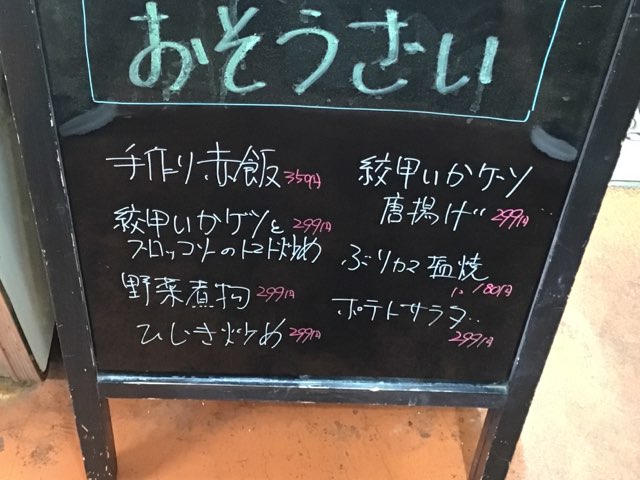 おそうさい
手作り赤飯 350円
紋甲いかゲソと 299円
ブロッコリーのトマト炒め
野菜煮物 299円
ひじき炒め 299円
紋甲いかゲソ
唐揚げ 299円
ぶりカマ塩焼
180円
ポテトサラダ
299円